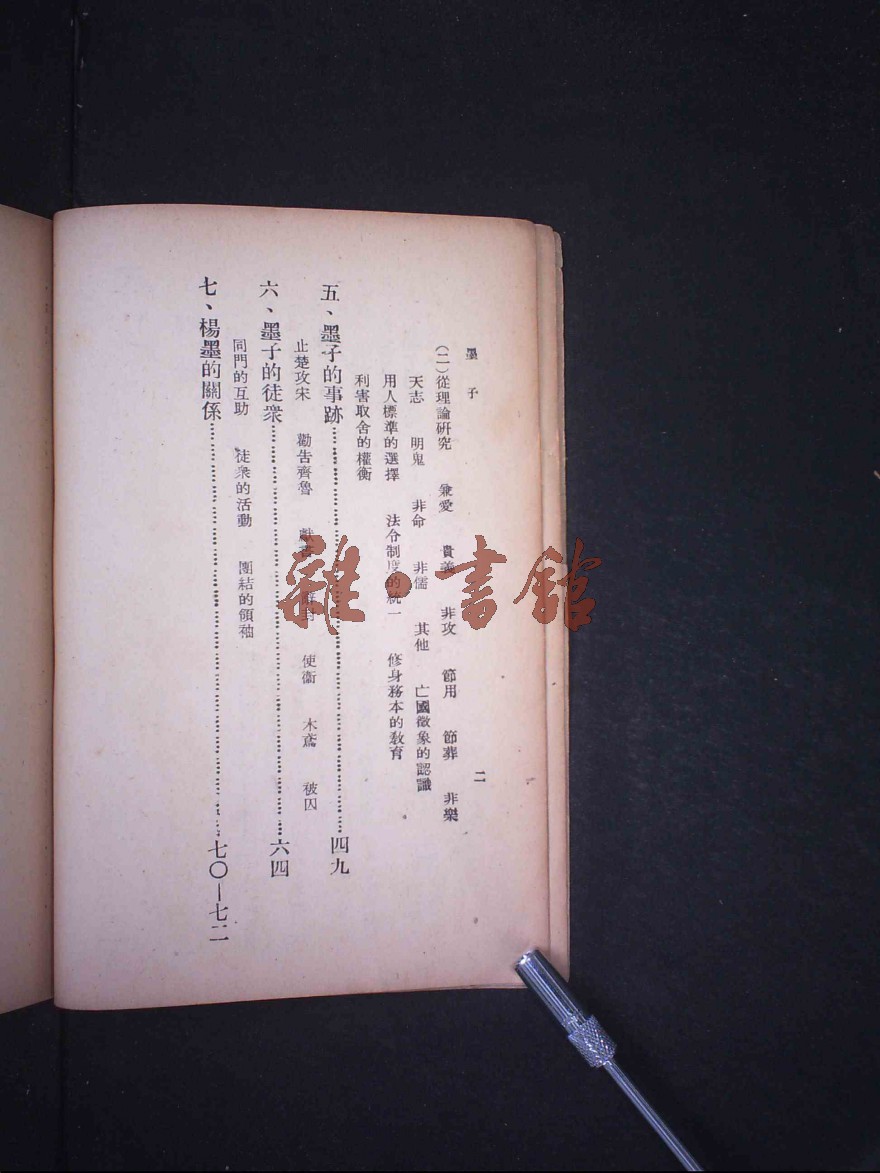 墨子 二
(二)從理論研究 兼愛 貴義 非攻 節用 節葬 非樂
天志 明鬼 非命 非儒 其他 亡國徵象的認識
用人標準的選擇 法令制度的統一 修身務本的教育
利害取舍的權衡
五、墨子的事跡……四九
止楚攻宋 勸告齊魯 獻書 辭封 使衞 木鳶 被囚
六、墨子的徒衆……六四
同門的互助 徒衆的活動 團結的領袖
七、楊墨的關係……七〇—七二
雜·書館